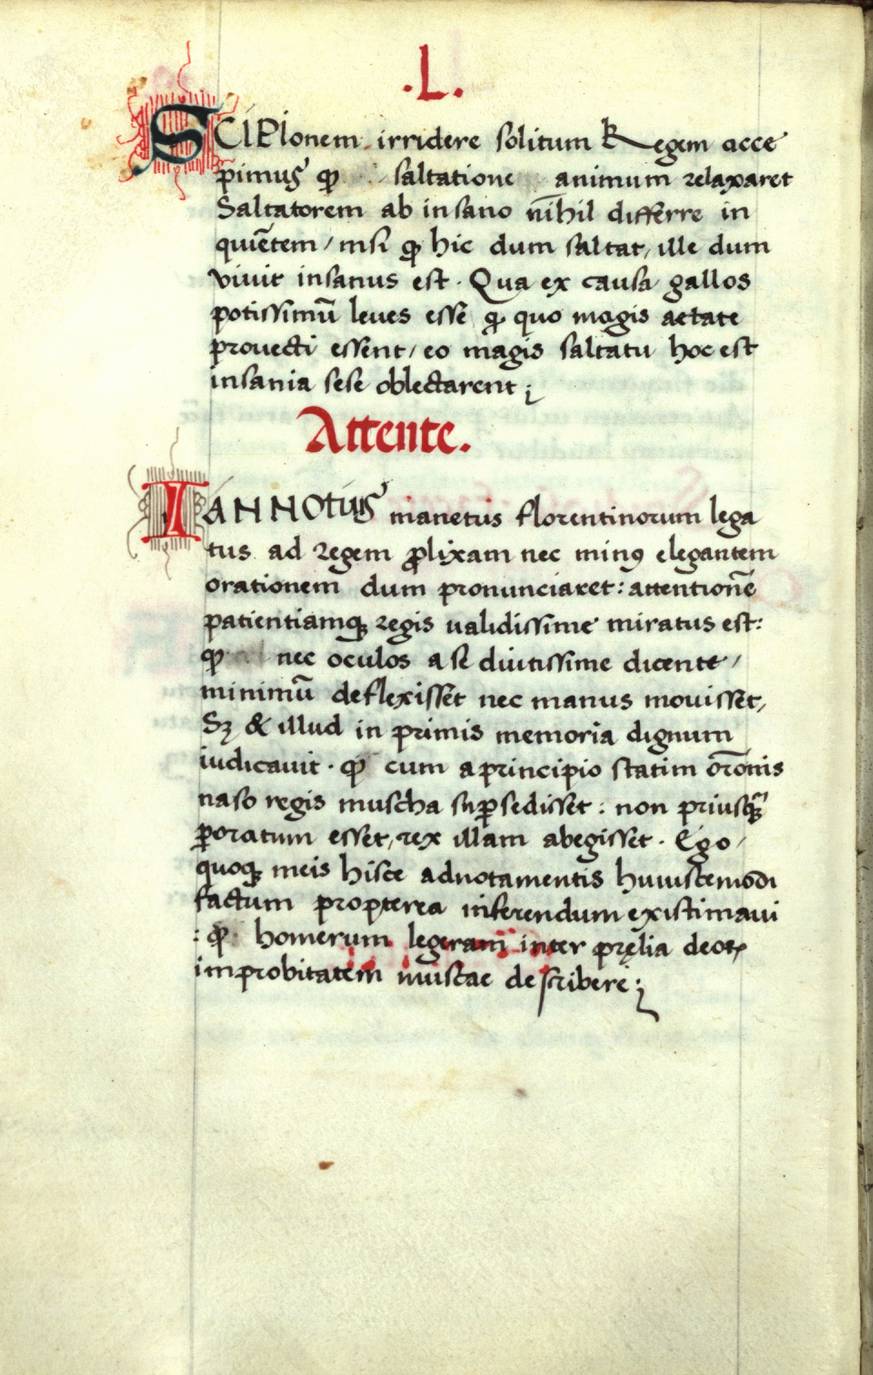 .L.
SCIPIonem irridere solitum Regem acce
pimus ꝙ saltatione animum relaxaret
Saltatorem ab insano nihil differre in
quiētem / nisi ꝙ hic dum saltat, ille dum
viuit insanus est. Qua ex causa gallos
potissimū leues esse ꝙ quo magis aetate
prouecti essent / eo magis saltatu hoc est
insania sese oblectarent ;
Attente.
IANNOtus manetus florentinorum lega
tus ad Regem ꝓlixam nec minꝰ elegantem
orationem dum pronunciaret: attentionē
patientiamqꝫ regis ualidissime miratus est:
ꝙ nec oculos a se diutissime dicente /
minimū deflexisset nec manus mouisset,
Sꝫ & illud in primis memoria dignum
iudicauit. ꝙ cum a principio statim orōnis
naso regis muscha suꝑsedisset: non priusqꝫ
ꝑoratum esset, rex illam abegisset. Ego /
quoqꝫ meis hisce adnotamentis huiuscemodi
factum propterea inserendum existimaui
: ꝙ homerum legeram inter pręlia deoꝝ
improbitatem muscae describere ;